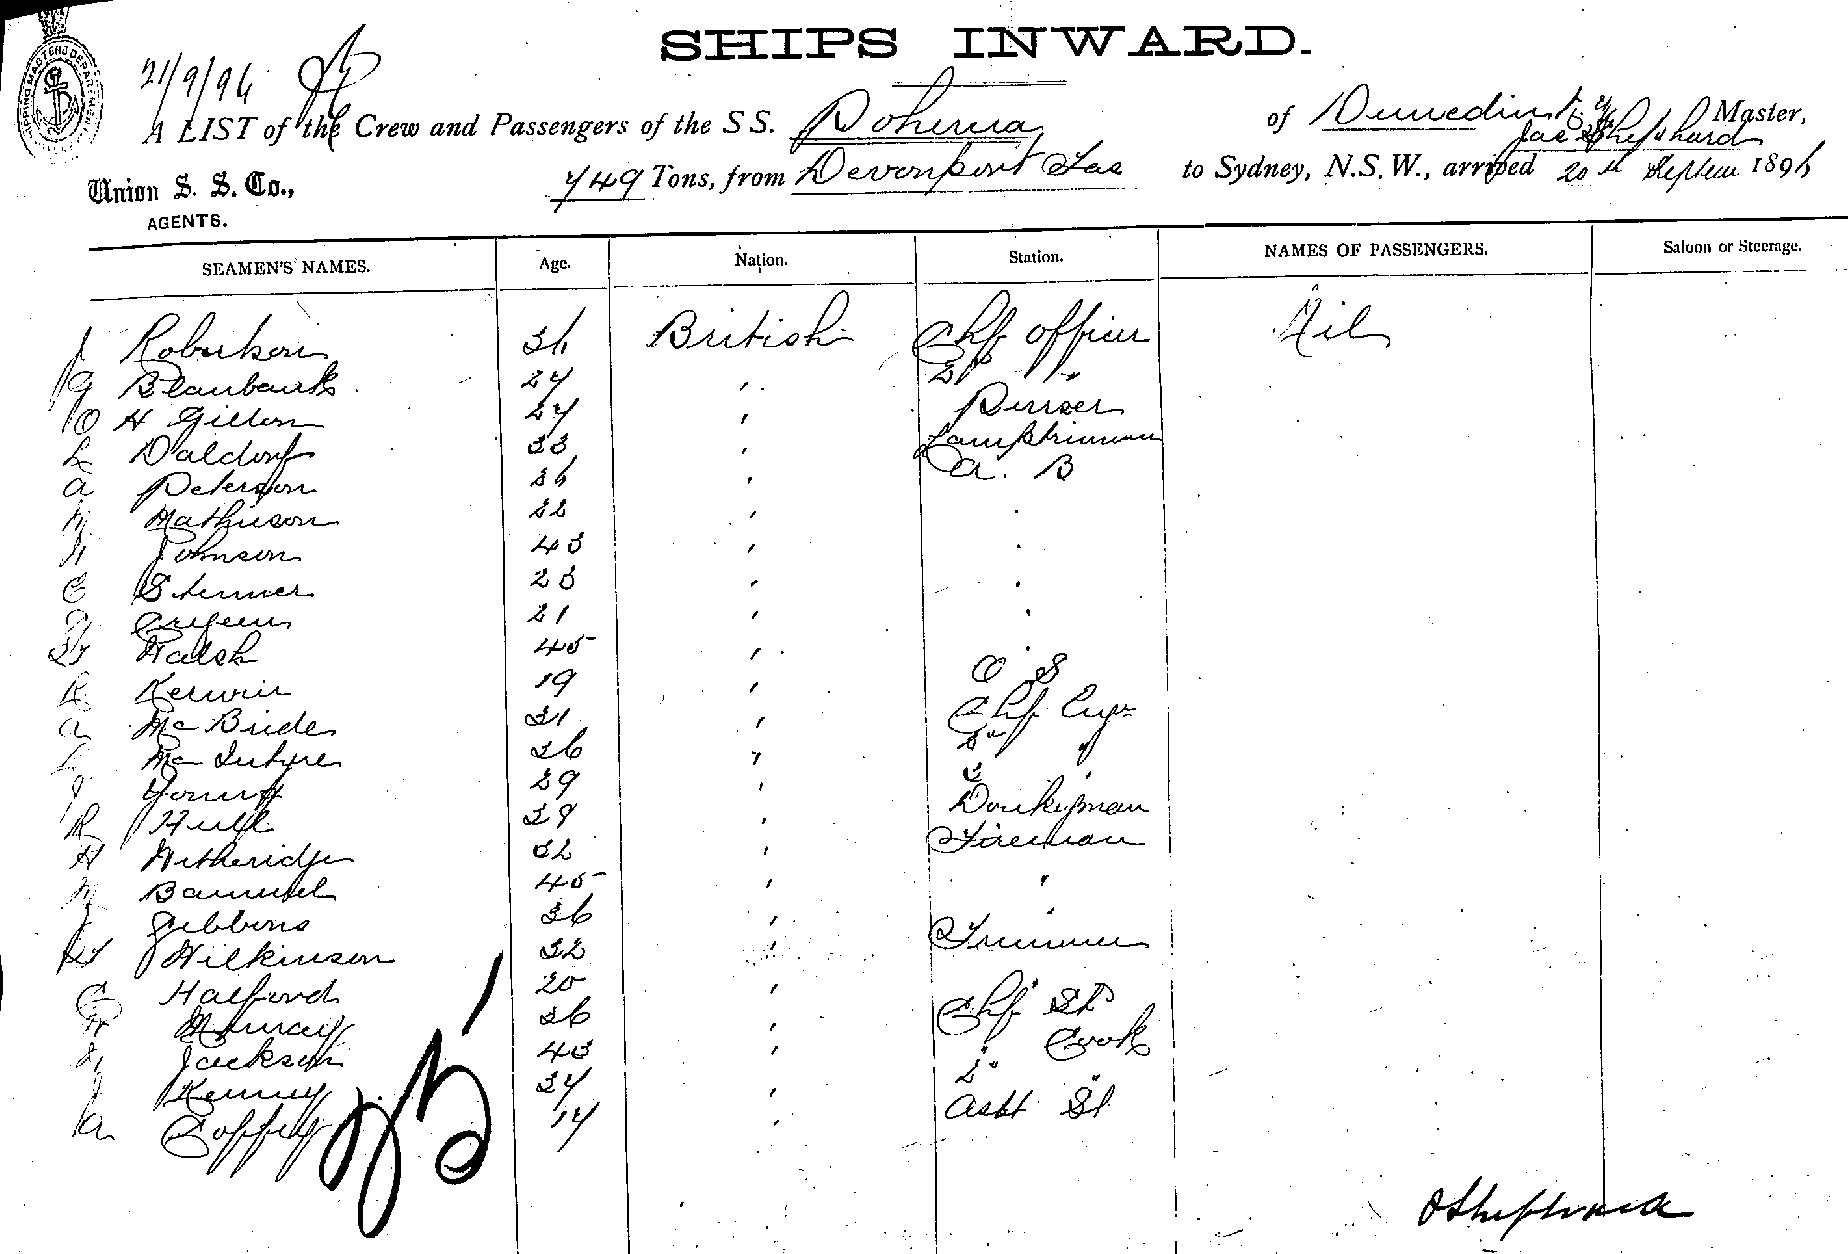 SHIPS INWARD.
21/9/96
A LIST of the Crew and Passengers of the SS. Pohenua of Dunedin Jas Shephard Master,
749 Tons, from Devonport Tas to Sydney, N.S.W., arrived 20th 1896
Union S. S. Co.,
AGENTS.
SEAMEN'S NAMES. Age. Nation. Station. NAMES OF PASSENGERS. Saloon or Steerage.
J Robertson 36 British Chf officer Nil
27 " 2d "
H Gillon 27 " Purser
L Daldorf 33 " Lamptrimmer
A Peterson 26 " A. B
M Mathieson 22 " "
N Johnson 43 " "
23 " "
21 " "
Walsh 45 " "
R Kerwin 19 " O S
A McBride 31 " Chf Engr
McIntyre 36 " 2d "
J Young 29 " 3 "
R 39 " Donkeyman
H Witheridge 32 " Fireman
45 " "
J Gibbons 36 " "
W Wilkinson 32 " Trimmer
C Halford 20 "
Murray 36 " Chf St
Jackson 43 " Cook
J Kenny 27 " 2d "
A Coffey 17 " Asst St
25